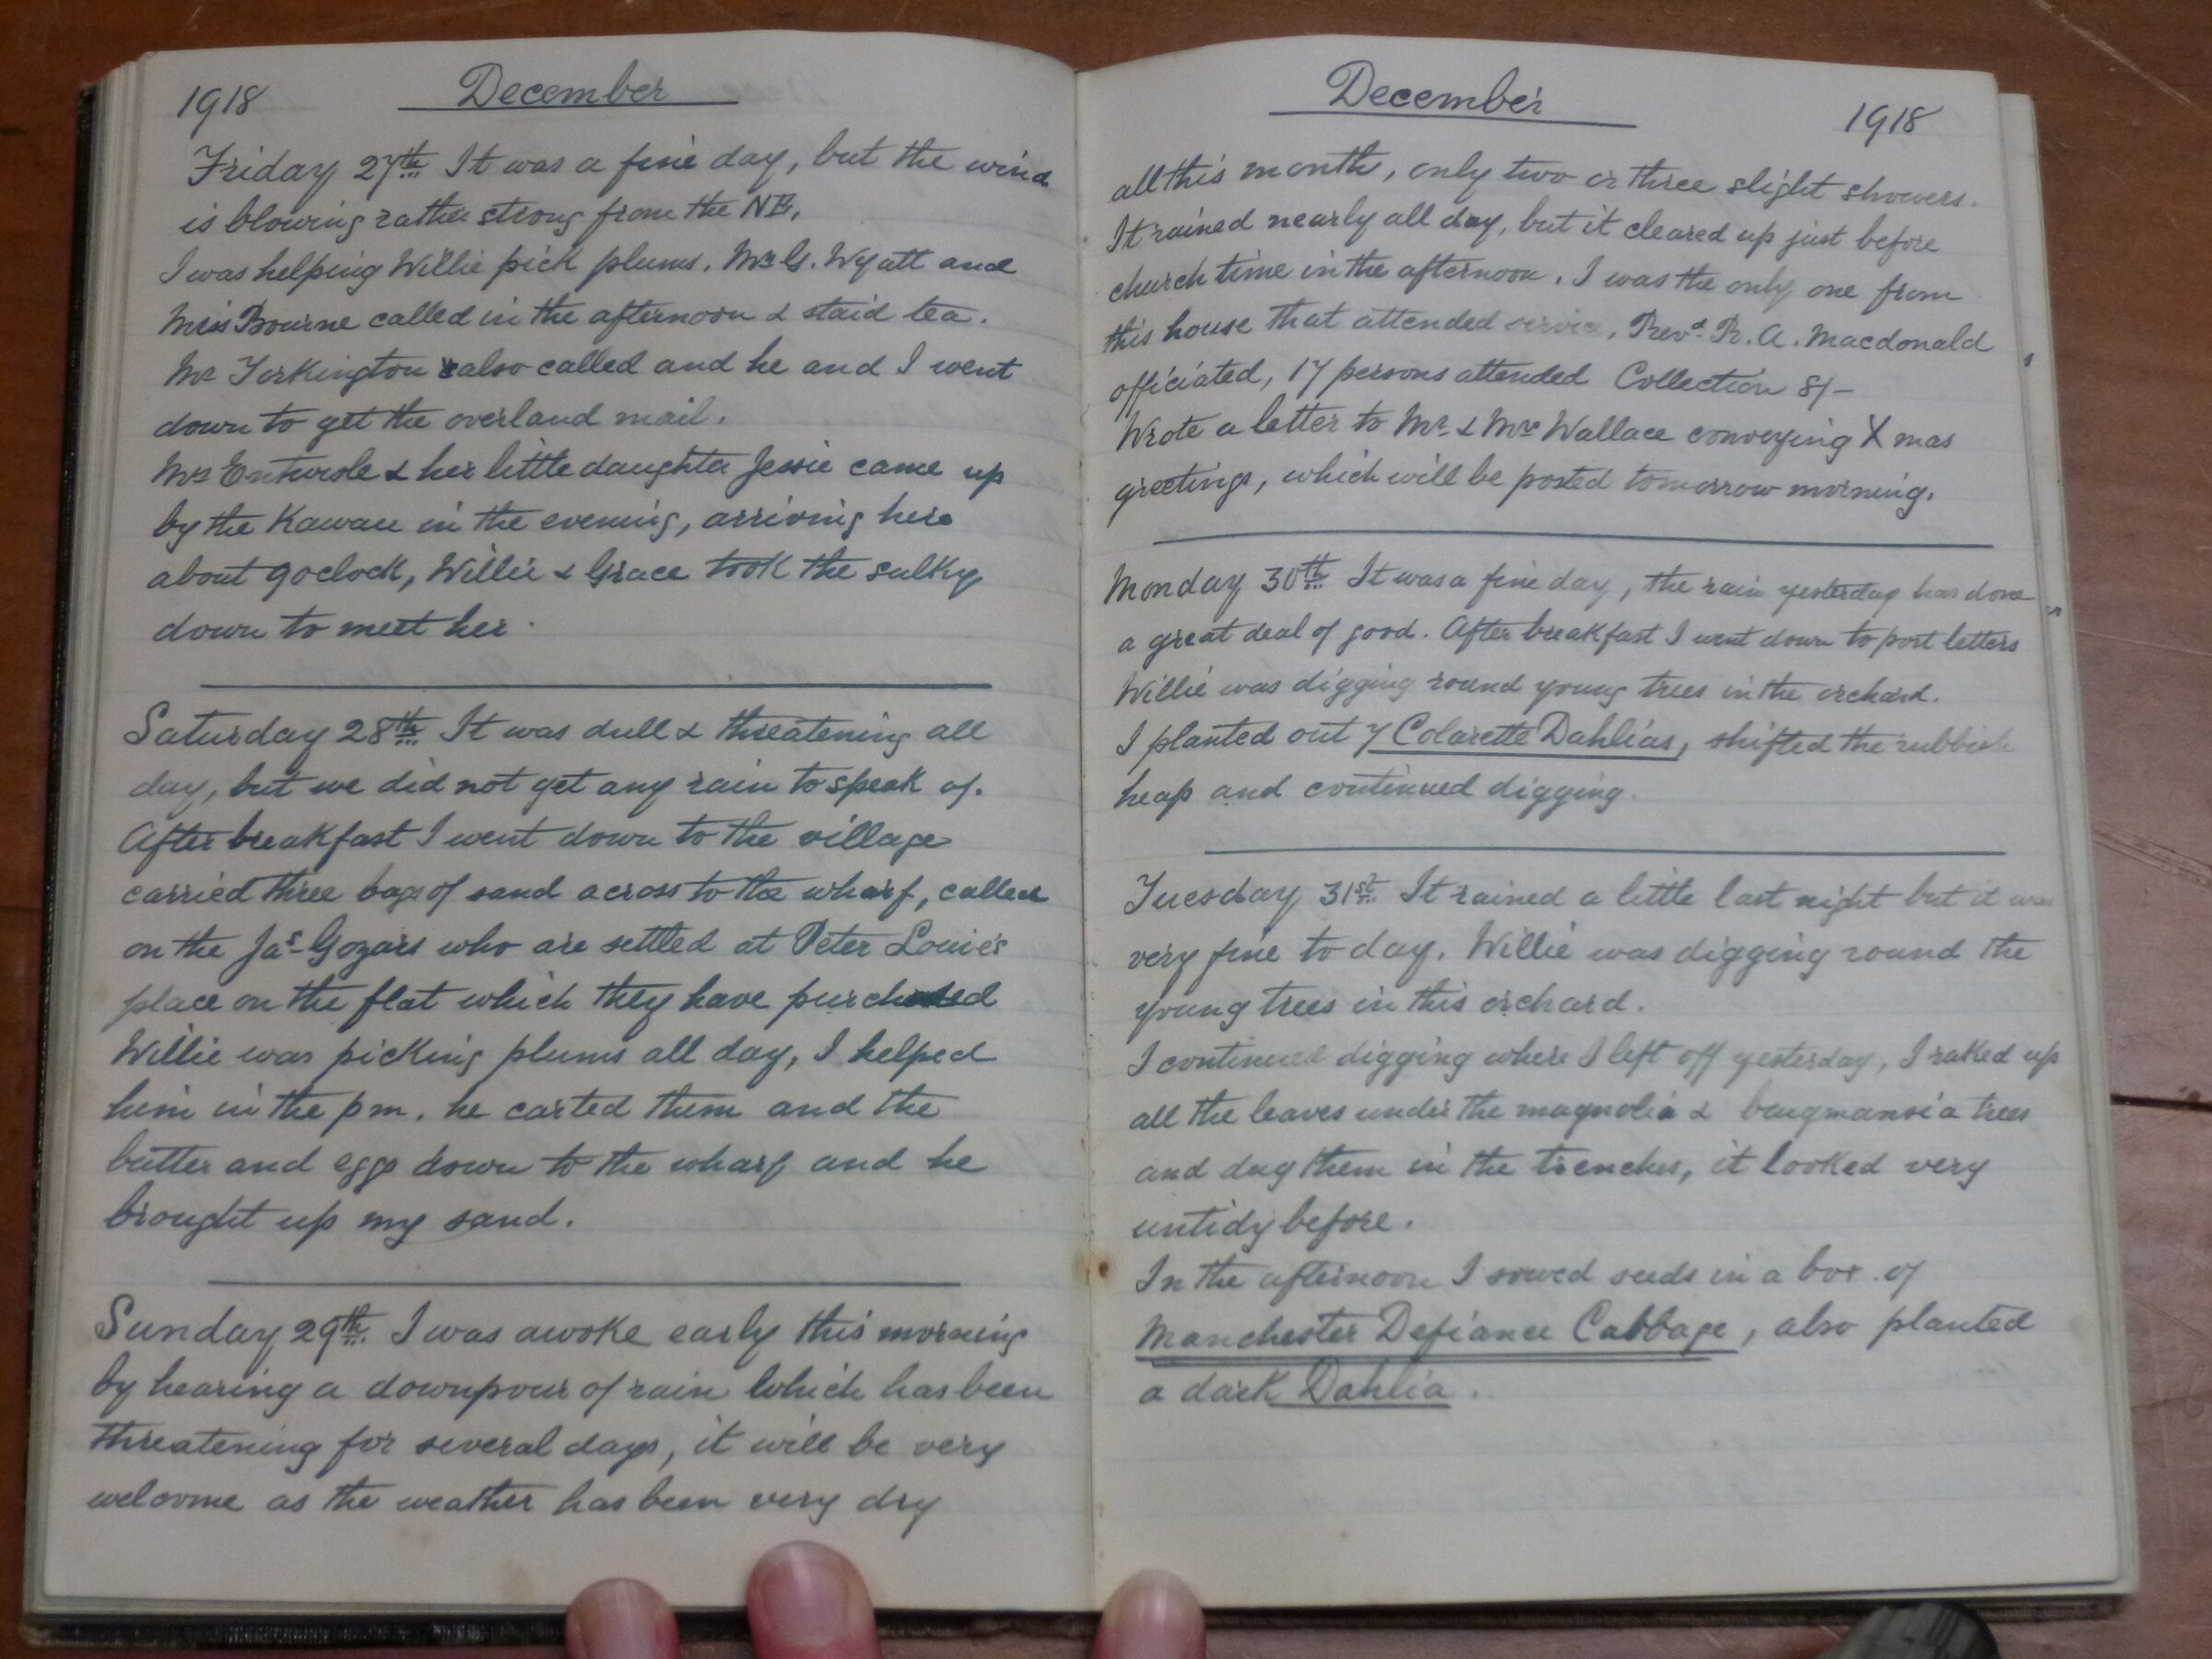 1918 December
Friday 27th It was a fine day, but the wind
is blowing rather strong from the NE,
I was helping Willie pick plums. Mr G. Wyatt and
Miss Bourne called in the afternoon & staid tea.
Mr Torkington also called and he and I went
down to get the overland mail.
Mrs Entwisle & her little daughter Jessie came up
by the Kawau in the evening, arriving here
about 9oclock, Willie & Grace took the sulky
down to meet her.
Saturday 28th It was dull & threatening all
day, but we did not get any rain to speak of.
After breakfast I went down to the village
carried three bags of sand across to the wharf, called
on the Jas Gozars who are settled at Peter Louie's
place on the flat which they have purchased
Willie was picking plums all day, I helped
him in the pm. he carted them and the
butter and eggs down to the wharf and he
brought up my sand.
Sunday 29th. I was awoke early this morning
by hearing a downpour of rain which has been
threatening for several days, it will be very
welcome as the weather has been very dry
December 1918
all this month, only two or three slight showers.
It rained nearly all day, but it cleared up just before
church time in the afternoon. I was the only one from
this house that attended service. Revd. R. A. Macdonald
officiated, 17 persons attended Collection 8/-
Wrote a letter to Mr. & Mrs Wallace conveying Xmas
greetings, which will be posted tomorrow morning.
Monday 30th It was a fine day, the rain yesterday has done
a great deal of good. After breakfast I went down to post letters
Willie was digging round young trees in the orchard.
I planted out 7 Colarette Dahlias, shifted the rubbish
heap and continued digging.
Tuesday 31st. It rained a little last night but it was
very fine to day. Willie was digging round the
young trees in this orchard.
I continued digging where I left off yesterday, I raked up
all the leaves under the magnolia & brugmansia trees
and dug them in the trenches, it looked very
untidy before.
In the afternoon I sowed seeds in a box of
Manchester Defiance Cabbage, also planted
a dark Dahlia.